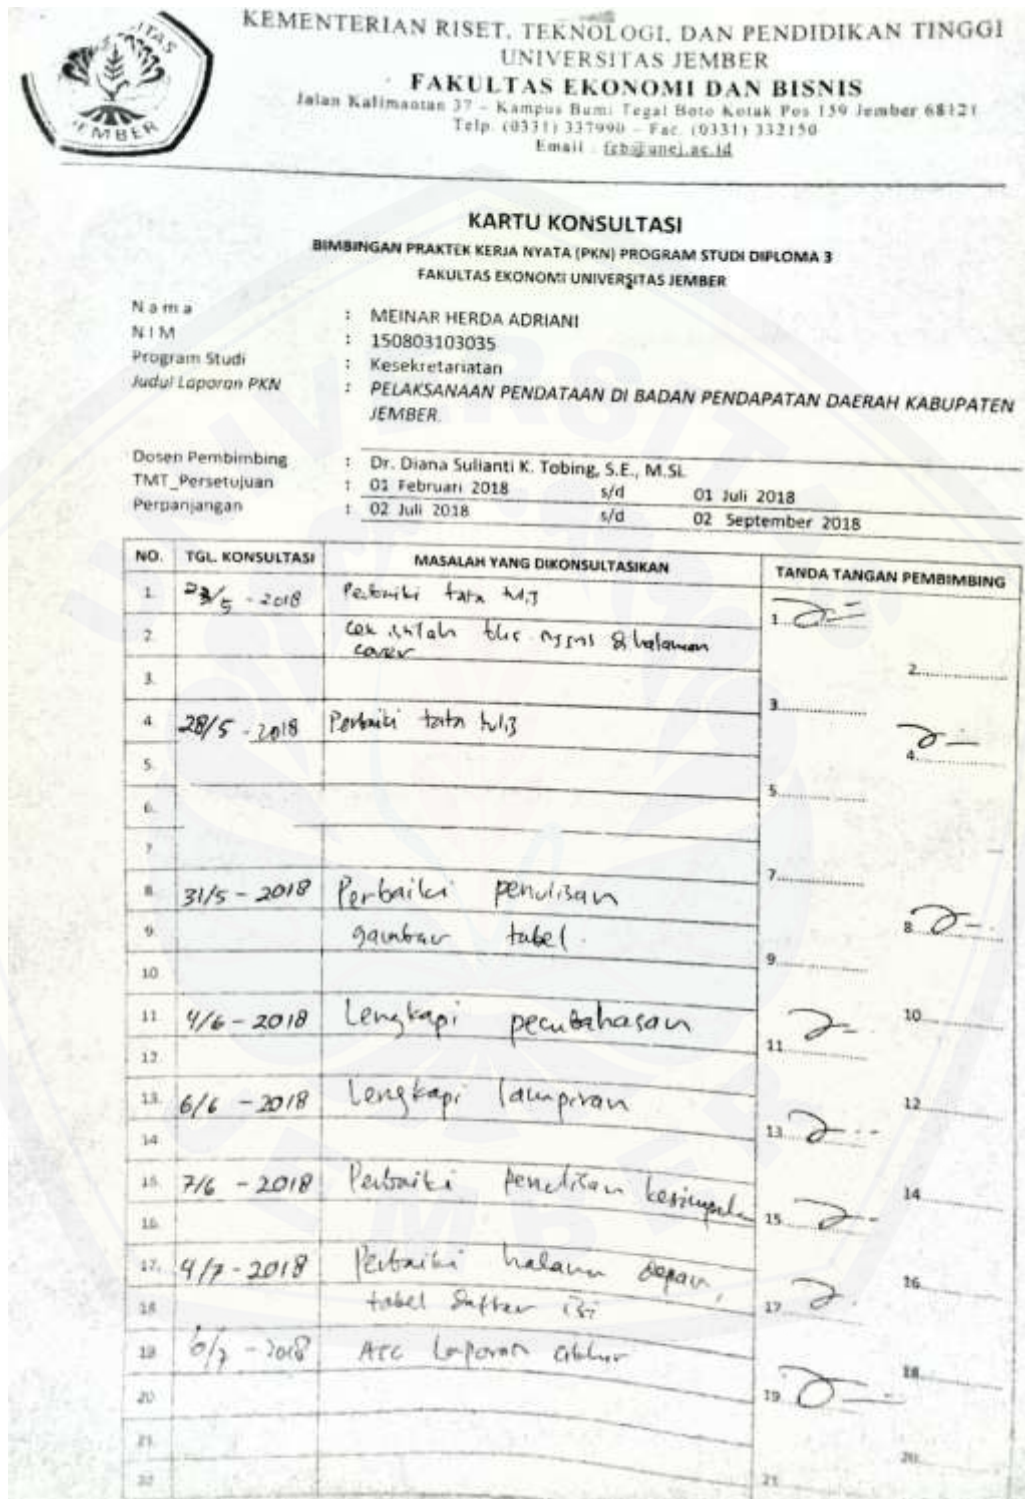 KEMENTERIAN RISET, TEKNOLOGI, DAN PENDIDIKAN TINGGI
UNIVERSITAS JEMBER
FAKULTAS EKONOMI DAN BISNIS
Jalan Kalimantan 37 – Kampus Bumi Tegal Boto Kotak Pos 159 Jember 68121
Telp. (0331) 337990 – Fac. (0331) 332150
Email : feb@unej.ac.id
JEMBER
KARTU KONSULTASI
BIMBINGAN PRAKTEK KERJA NYATA (PKN) PROGRAM STUDI DIPLOMA 3
FAKULTAS EKONOMI UNIVERSITAS JEMBER
N a m a : MEINAR HERDA ADRIANI
N I M : 150803103035
Program Studi : Kesekretariatan
Judul Laporan PKN : PELAKSANAAN PENDATAAN DI BADAN PENDAPATAN DAERAH KABUPATEN
JEMBER.
Dosen Pembimbing : Dr. Diana Sulianti K. Tobing, S.E., M.Si.
TMT_Persetujuan : 01 Februari 2018 s/d 01 Juli 2018
Perpanjangan : 02 Juli 2018 s/d 02 September 2018
NO. TGL. KONSULTASI MASALAH YANG DIKONSULTASIKAN TANDA TANGAN PEMBIMBING
1. 23/5 - 2018 Perbaiki tata tulis 1
2. cek istilah & halaman 2
cover
3. 3
4. 28/5 - 2018 Perbaiki tata tulis 4
5. 5
6.
7. 7
8. 31/5 - 2018 Perbaiki penulisan 8
9. gambar tabel. 9
10 10
11 4/6 - 2018 Lengkapi pembahasan 11
12. 12
13. 6/6 - 2018 Lengkapi lampiran 13
14 14
15. 7/6 - 2018 Perbaiki penulisan kesimpulan 15
16. 16
17. 4/7 - 2018 Perbaiki halaman depan, 17
18 tabel daftar isi 18
19 - 2018 Acc Laporan akhir 19
20 20
21. 21
22